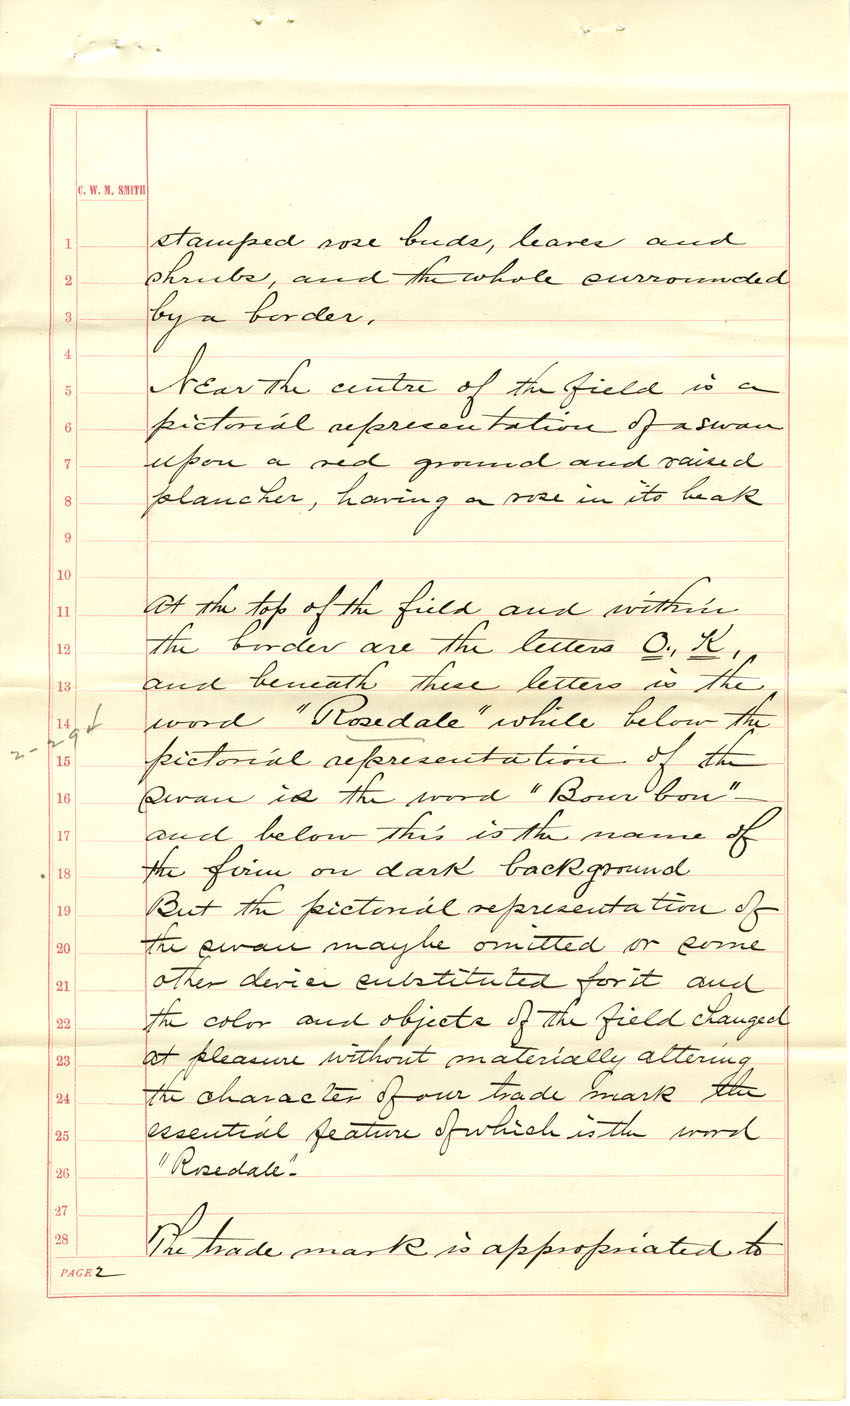 C. W. M. SMITH
1 stamped rose buds, leaves and
2 shrubs, and the whole surrounded
3 by a border.
4
5 Near the centre of the field is a
6 pictorial representation of a swan
7 upon a red ground and raised
8 plancher, having a rose in its beak
9
10
11 At the top of the field and within
12 the border are the letters O., K,
13 and beneath these letters is the
14 word "Rosedale" while below the
2-29d
15 pictorial representation of the
16 swan is the word "Bourbon"-
17 and below this is the name of
18 the firm on dark background
19 But the pictorial representation of
20 the swan maybe omitted or some
21 other device substituted for it and
22 the color and objects of the field changed
23 at pleasure without materially altering
24 the character of our trade mark the
25 essential feature of which is the word
26 "Rosedale".
27
28 The trade mark is appropriated to
PAGE 2